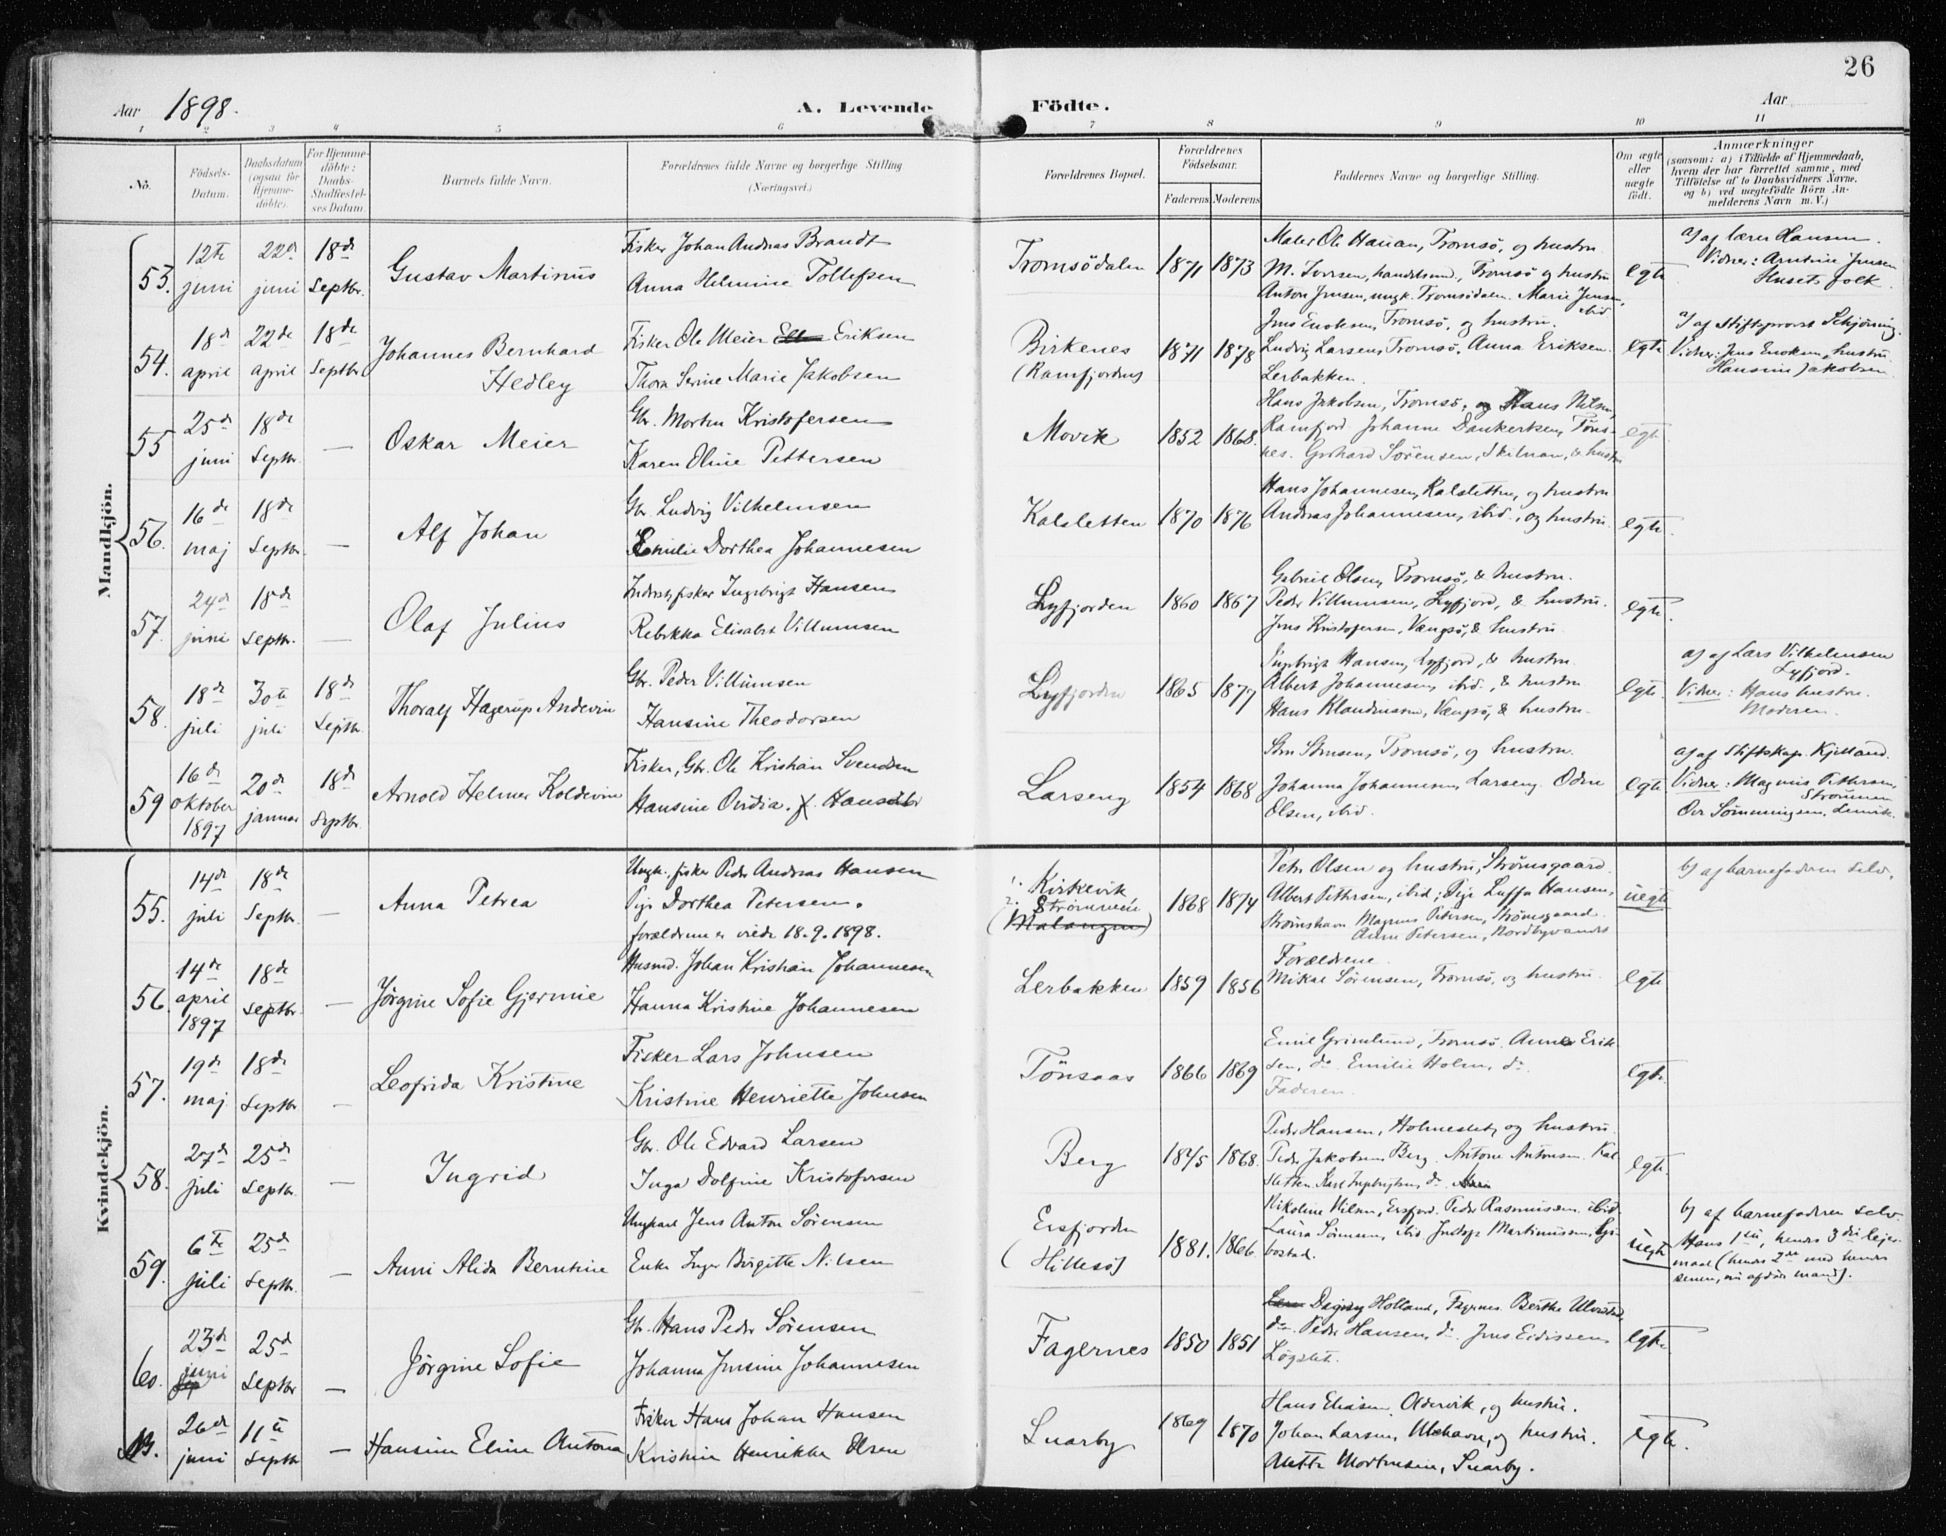 26
Aar 1898. A. Levende Födte. Aar
1 2 3 4 5 6 7 8 9 10 11
No.
Födsels-
Datum.
Daabsdatum
(ogsaa for
Hjemme-
döbte).
For Hjemme-
döbte:
Daabs-
Stadfæstel-
ses Datum.
Barnets fulde Navn.
Forældrenes fulde Navne og borgerlige Stilling
(Næringsvei.)
Forældrenes Bopæl.
Forældrenes
Födselsaar.
Faderens Moderens
Faddernes Navne og borgerlige Stilling.
Om ægte
eller
uægte
födt.
Anmærkninger
(saasom: a) i Tilfælde af Hjemmedaab,
hvem der har forrettet samme, med
Tilföielse af to Daabsvidners Navne.
og b) ved uægtefödte Börn An-
melderens Navn m. V.)
Mandkjön.
53. 12te juni 22de juni 18de Septbr.
Gustav Martinus
Fisker Johan Andreas Brandt
Anna Helmine Tollefsen
Tromsödalen 1871 1873
Maler Ole Hauan, Tromsö, og hustru
M. Iversen, handelsmd, Tromsö og hustru
Anton Jensen, ungk. Tromsödalen. Marie Jensen,
ibid
egte
a) af lærer Hansen.
Vidner: Arntine Jensen
Husets folk
54. 18de april 22de april 18de Septbr
Johannes Bernhard
Hedley
Fisker Ole Meier Eriksen
Thora Serine Marie Jakobsen
Birkenes
(Ramfjorden)
1871 1878
Jens Enoksen, Tromsö, og hustru.
Ludvig Larsen, Tromsö. Anna Eriksen
Lerbakken.
egte
a) af Stiftsprovst Schjörning.
Vidner: Jens Enoksen, hustru.
Hansine Jakobsen
55 25de juni 18de Septbr. —
Oskar Meier
Gbr. Morten Kristofersen
Karen Oline Pettersen
Movik 1852 1868.
Hans Jakobsen, Tromsö, Hans Nilsen,
Ramfjord Johanne Dankertsen, Töns-
nes. Gerhard Sörensen, Skilman, & hustru
egte
56. 16de maj 18de Septbr. —
Alf Johan
Gbr. Ludvig Vilhelmsen
Emilie Dorthea Johannesen
Kalsletten 1870 1876
Hans Johannesen, Kalsletten, og hustru
Andreas Johannesen, ibid., og hustru.
egte.
57. 24de juni 18de Septbr. —
Olaf Julius
Fisker Ingebrigt Hansen
Rebekka Elisabet Villumsen
Lyfjorden 1860 1867
Gabriel Olsen, Tromsö, & hustru.
Peder Villumsen, Lyfjord, & hustru.
Jens Kristofersen, Vængsö, & hustru
egte.
58. 18de juli 30te juli 18de Septbr.
Thoralf Hagerup Andevin
Gbr. Peder Villumsen
Hansine Theodorsen
Lyfjorden 1865 1877
Ingebrigt Hansen, Lyfjord, & hustru.
Albert Johannesen, ibid., & hustru
Hans Klaudiussen, Vængsö, & hustru.
egte.
a) af Lars Vilhelmsen
Lyfjord.
Vidner: Hans hustru.
Moderen.
59 16de oktober 1897 20de januar 18de Septbr.
Arnold Helmer Koldevin
Fisker, Gbr. Ole Kristian Svendsen
Hansine Ovidia f.
Larseng 1854 1868
Sörensen, Tromsö, og hustru.
Johanna Johannesen, Larseng. Odin
Olsen, ibid.
egte
a) af Stiftskap. Kjelland.
Vidner: Magnus Pettersen,
Strömmen
Ove Sömmingsen, Lenvik.
Kvindekjön.
55. 14de juli 18de Septbr. —
Anna Petrea
Ungk. fisker Peder Andreas Hansen
Pige Dorthea Petersen.
forældrene er viede 18.9.1898.
1. Kirkevik
2. Strömmen
(Malangen)
1868 1874
Peter Olsen og hustru, Strömsgaard.
Albert Pettersen, ibid; Pige Luffa Hansen,
Strömshavn Magnus Petersen, Strömsgaard
Anne Petersen, Nordbyvandet
uegte
b) af barnefaderen selv.
56. 14de april 1897 18de Septbr. —
Jörgine Sofie Gjermie
Husmd. Johan Kristian Johannesen
Hanna Kristine Johannesen
Lerbakken 1859 1856
Forældrene.
Mikal Sörensen, Tromsö, og hustru.
egte
57. 19de maj 18de Septbr —
Leofrida Kristine
Fisker Lars Johnsen
Kristine Henriette Johnsen
Tönsaas 1866 1869
Emil Grimlund, Tromsö. Anne Erik
sen, do. Emilie Holm, do.
Faderen.
egte.
58. 27de juli 25de Septbr. —
Ingrid
Gbr. Ole Edvard Larsen
Inga Dolfine Kristofersen
Berg 1875 1868.
Peder Hansen, Holmeslet, og hustru.
Peder Jakobsen Berg. Antone Antonsen Kal
sletten Karl Ingebrigtsen do.
egte.
59. 6te juli 25de Septbr. —
Anni Alida Berntine
Ungkarl Jens Anton Sörensen
Enke Inger Birgitte Nilsen
Ersfjorden
(Hillesö)
1881. 1866.
Nikoline Nilsen, Ersfjord. Peder Rasmussen ibid
Laura Sörensen, ibid Martinussen,
bostad.
uegte
b) af barnefaderen selv.
Hans 1ste, hendes 3die lejer-
maal (hendes 2de med hendes
senere, nu afdöde mand).
60. 23de juni 25de Septbr —
Jörgine Sofie
Gbr. Hans Peder Sörensen
Johanna Jensine Johannesen
Fagernes 1850 1851
Dagny Holland, Fagernes. Berthe
do. Peder Hansen, do. Jens Eidissen,
Lögslet.
egte.
26de juni 11te Septbr —
Hansine Eline Antona
Fisker Hans Johan Hansen
Kristine Henrikke Olsen
Snarby 1869 1870
Hans Eliasen, Oldervik, og hustru.
Johan Larsen, og hustru.
Anette Mortensen, Snarby.
egte.